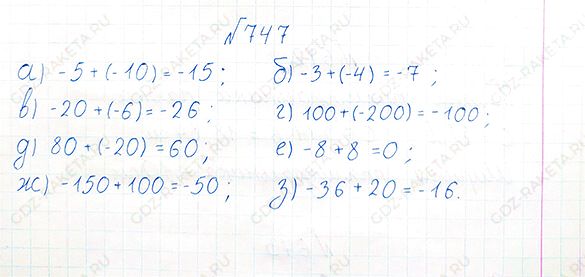 №747
а) -5+(-10)=-15; б) -3+(-4)=-7;
в) -20+(-6)=-26; г) 100+(-200)=-100;
д) 80+(-20)=60; е) -8+8=0;
ж) -150+100=-50; з) -36+20=-16.
GDZ-RAKETA.RU